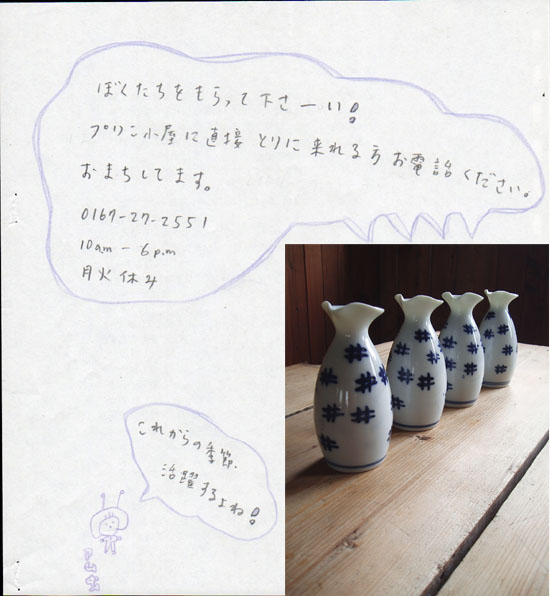 ぼくたちをもらって下さーい!
プリン小屋に直接とりに来れる方お電話ください。
おまちしてます。
0167-27-2551
10am-6p.m
月火休み
これからの季節、
活躍するよね!